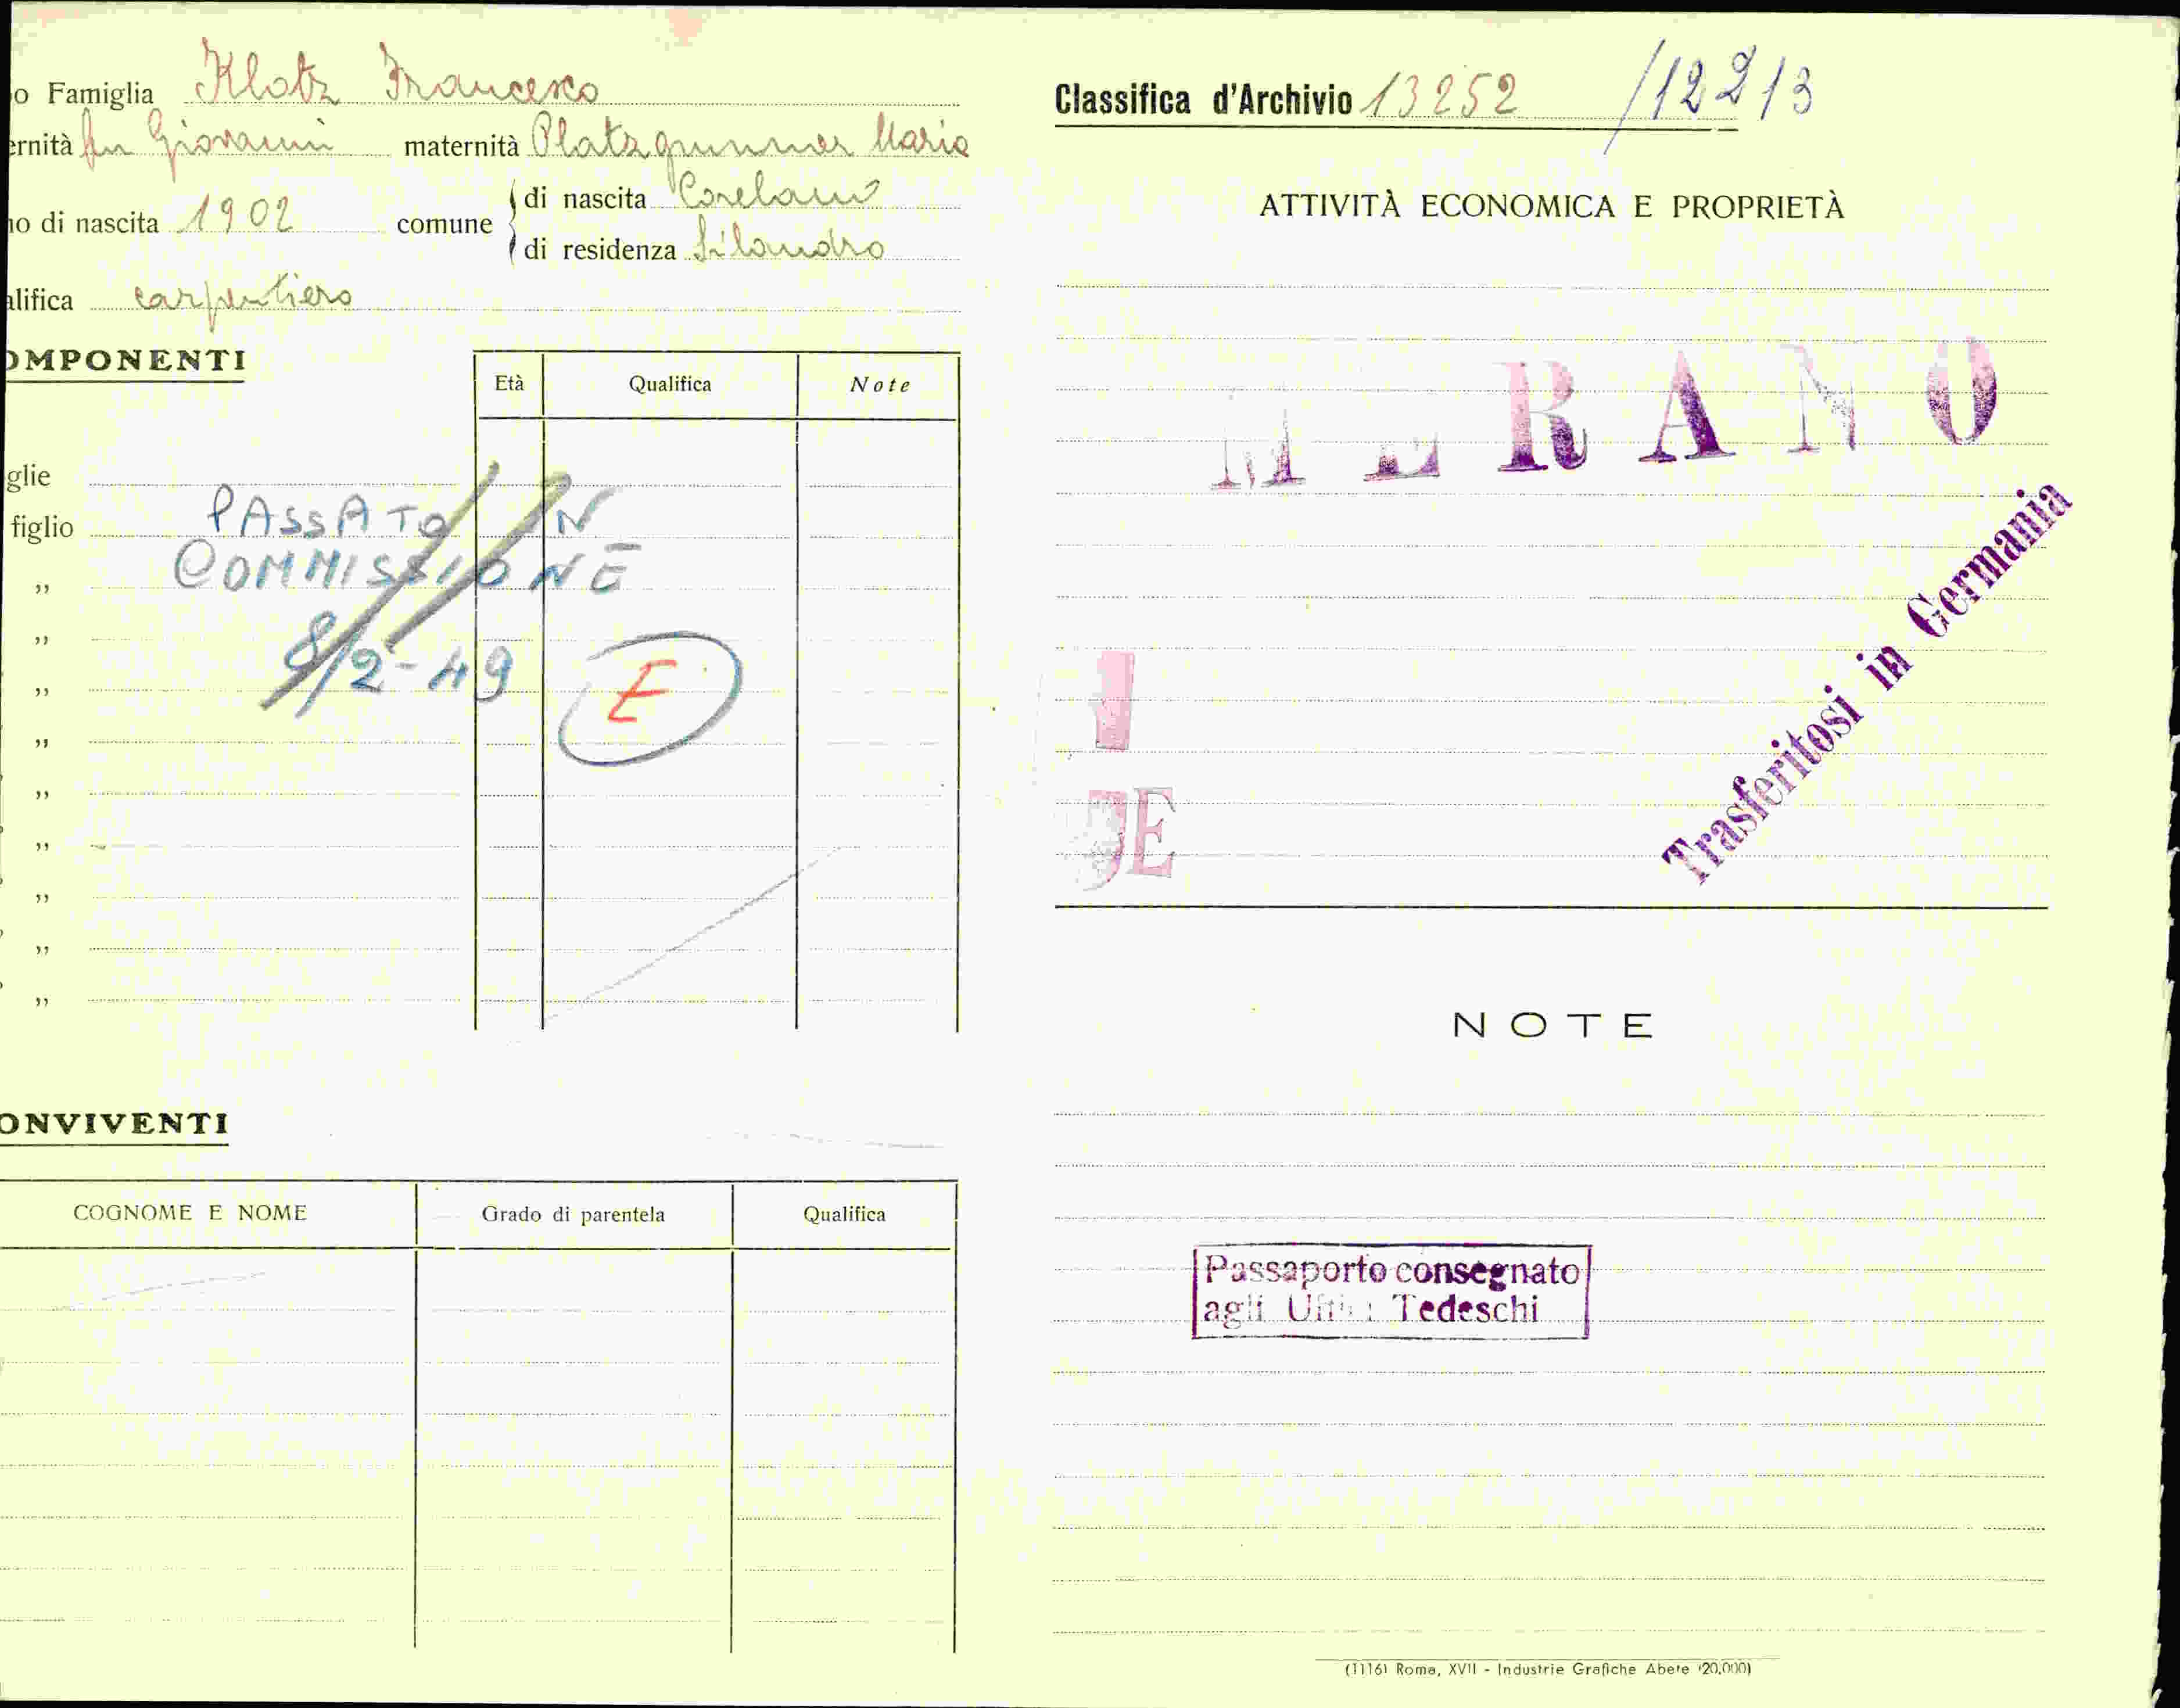 o Famiglia Klotz Francesco
ernità fu Giovanni maternità Platzgummer Maria
no di nascita 1902 comune di nascita Corelano
di residenza Silandro
alifica carpentiero
OMPONENTI
Età Qualifica Note
glie
figlio
PASSATO IN
COMMISSIONE
8/2-49
E
"
"
"
"
"
"
"
"
"
ONVIVENTI
COGNOME E NOME Grado di parentela Qualifica
Classifica d'Archivio 13252 /12213
ATTIVITÀ ECONOMICA E PROPRIETÀ
MERANO
Trasferitosi in Germania
NOTE
Passaporto consegnato
agli Uffici Tedeschi
(1116) Roma, XVII - Industrie Grafiche Abete (20.000)